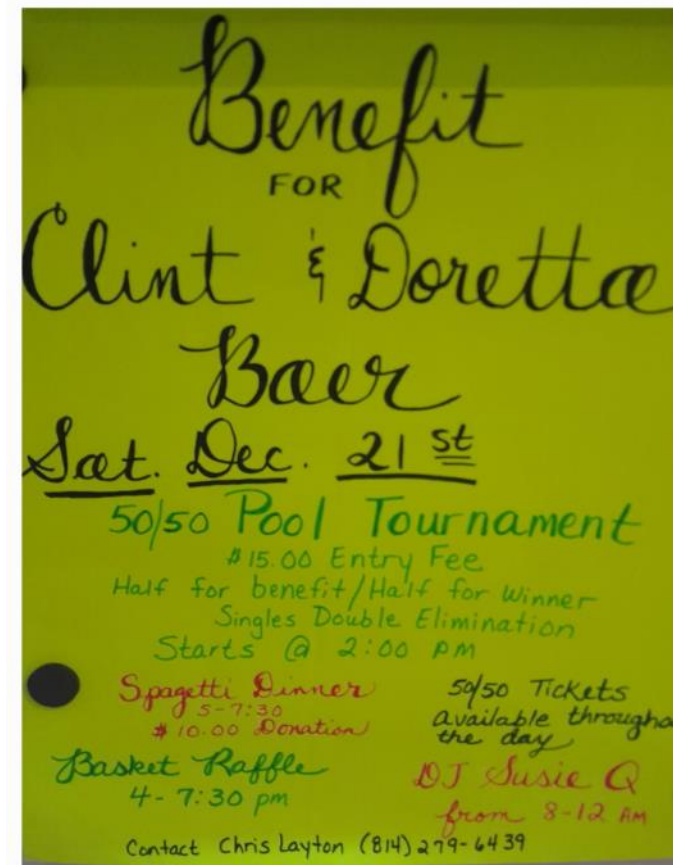 Benefit
FOR
Clint & Doretta
Baer
Sat. Dec. 21st
50/50 Pool Tournament
$15.00 Entry Fee
Half for benefit/Half for Winner
Singles Double Elimination
Starts @ 2:00 PM
Spagetti Dinner
5-7:30
$10.00 Donation
50/50 Tickets
available througho
the day
Basket Raffle
4-7:30 pm
DJ Susie Q
from 8-12 AM
Contact Chris Layton (814) 279-6439